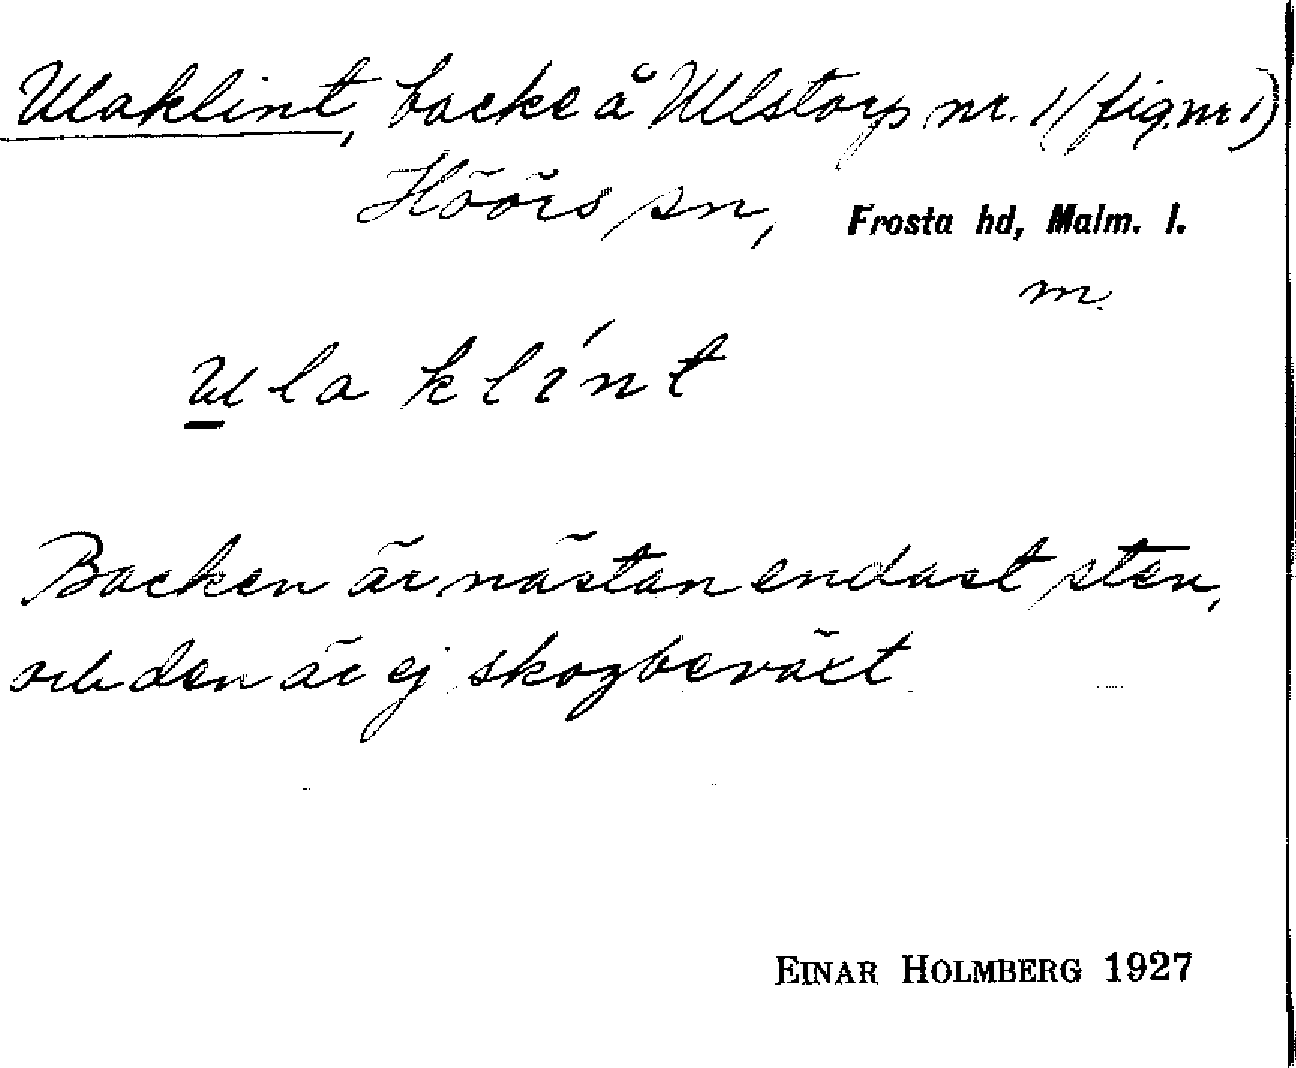 Ulaklint, backe å Ullstorp nr. 1 (fig. nr 1)
Höörs sn, Frosta hd, Malm. l.
m.
Ula klínt
Backen är nästan endast sten,
och den är ej skogbeväxt
EINAR HOLMBERG 1927